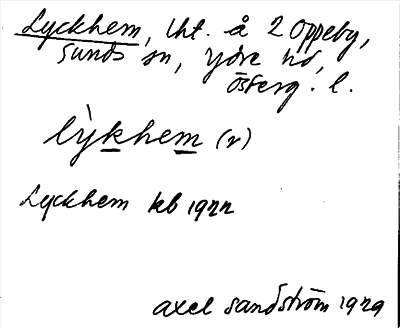 Lyckhem, lht. å 2 Oppeby,
Sunds sn, Ydre hd,
Österg. l.
lỳkhem (r)
Lyckhem kb 1922
Axel Sandström 1929